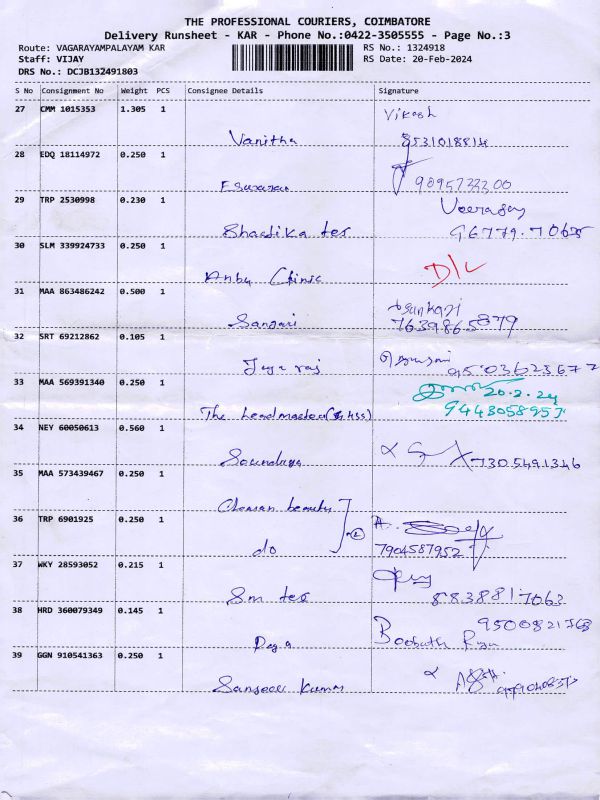 THE PROFESSIONAL COURIERS, COIMBATORE
Delivery Runsheet - KAR - Phone No.:0422-3505555 - Page No.:3
Route: VAGARAYAMPALAYAM KAR
RS No.: 1324918
Staff: VIJAY
RS Date: 20-Feb-2024
DRS No.: DCJB132491803
S No Consignment No Weight PCS Consignee Details Signature
27 CMM 1015353 1.305 1
Vikash
Vanitha 8531018814
28 EDQ 18114972 0.250 1
29 TRP 2530998 0.230 1
30 SLM 339924733 0.250 1
Anbu Clinic D/L
31 MAA 863486242 0.500 1
7639865879
32 SRT 69212862 0.105 1
9503623677
33 MAA 569391340 0.250 1
20.2.24
The Leadmaster 9443058957
34 NEY 60050613 0.560 1
Soundarya 7305491346
35 MAA 573439467 0.250 1
beauty
36 TRP 6901925 0.250 1
2
do 7904587952
37 WKY 28593052 0.215 1
Sm tex 8838817063
38 HRD 360079349 0.145 1
Boobath
39 GGN 910541363 0.250 1
Kumar